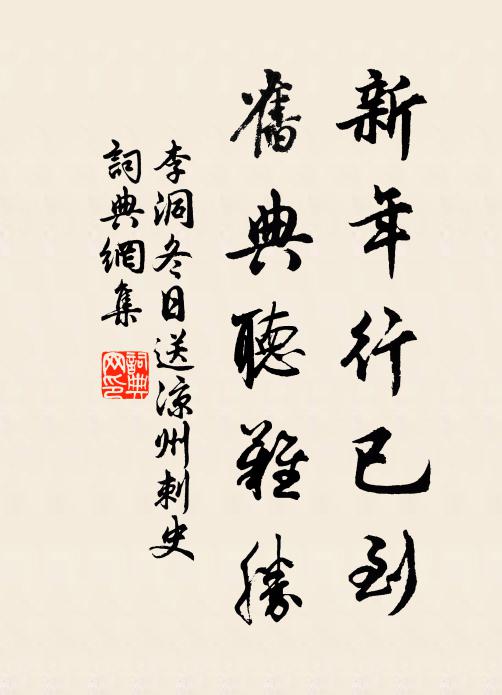 新年行已到
舊典聽難勝
李洞冬日送涼州刺史
詞典網集
詞典網印